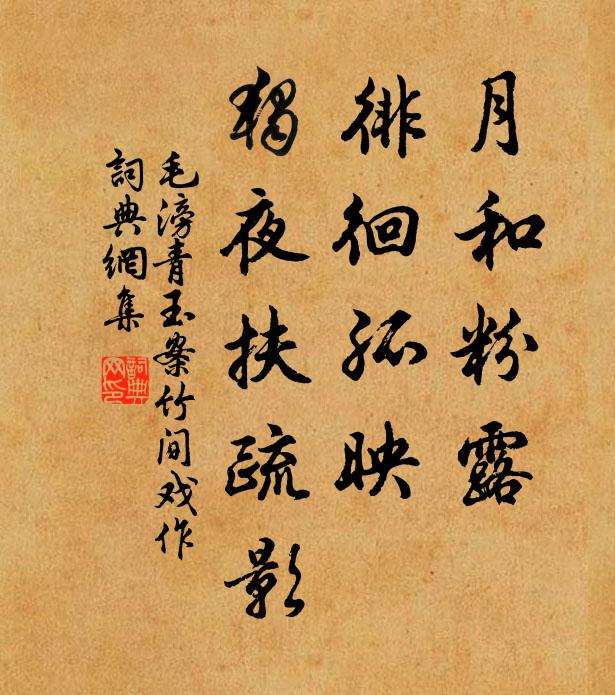 月和粉露
徘徊孤映
独夜扶疏影
毛滂青玉案竹间戏作
詞典網集
詞典网印